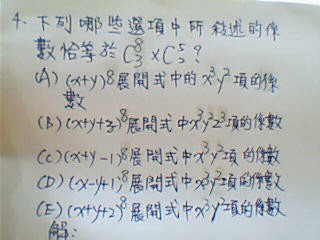 4. 下列哪些選項中所敘述的係
數恰等於 C⁸₃ × C⁵₃ ?
(A) (x+y)⁸ 展開式中的 x³y² 項的係
數
(B) (x+y+z)⁸ 展開式中 x³y²z³ 項的係數
(C) (x+y-1)⁸ 展開式中 x³y² 項的係數
(D) (x-y+1)⁸ 展開式中 x³y² 項的係數
(E) (x+y+2)⁸ 展開式中 x³y² 項的係數
解: